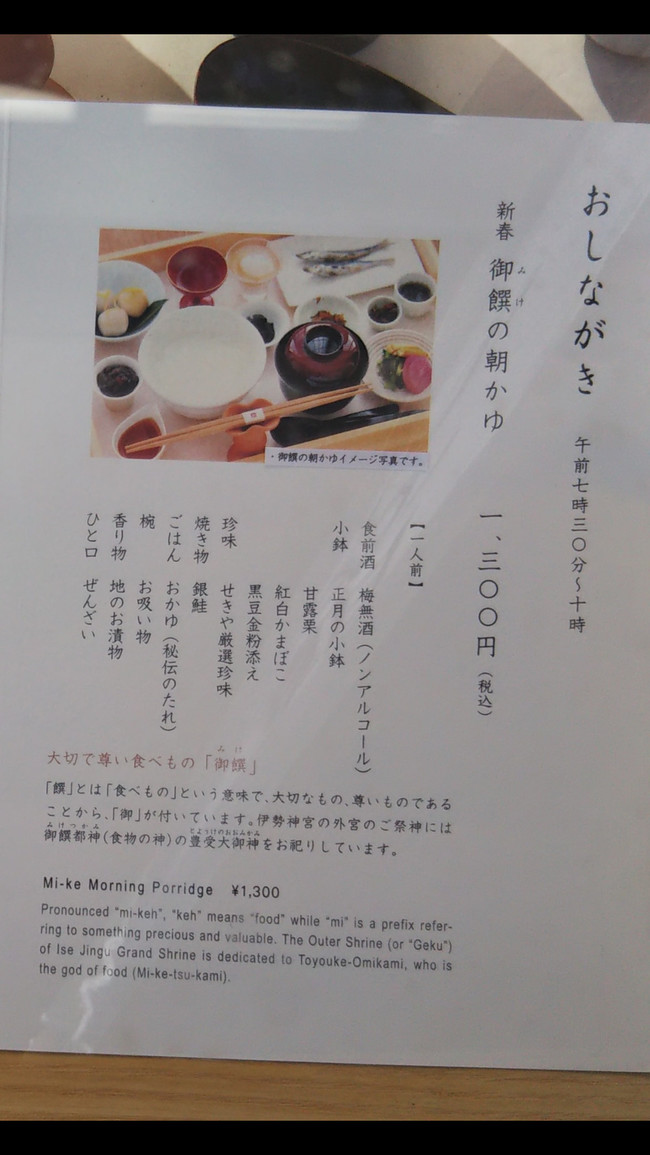 おしながき 午前七時三〇分～十時
新春 御饌の朝かゆ 一、三〇〇円（税込）
みけ
・御饌の朝かゆイメージ写真です。
【一人前】
食前酒 梅無酒（ノンアルコール）
小鉢 正月の小鉢
甘露栗
紅白かまぼこ
黒豆金粉添え
珍味 せきや厳選珍味
焼き物 銀鮭
ごはん おかゆ（秘伝のたれ）
椀 お吸い物
香り物 地のお漬物
ひと口 ぜんざい
みけ
大切で尊い食べもの「御饌」
「饌」とは「食べもの」という意味で、大切なもの、尊いものである
ことから、「御」が付いています。伊勢神宮の外宮のご祭神には
みけつかみ とようけのおおみかみ
御饌都神（食物の神）の豊受大御神をお祀りしています。
Mi-ke Morning Porridge ¥1,300
Pronounced “mi-keh”, “keh” means “food” while “mi” is a prefix refer-
ring to something precious and valuable. The Outer Shrine (or “Geku”)
of Ise Jingu Grand Shrine is dedicated to Toyouke-Omikami, who is
the god of food (Mi-ke-tsu-kami).